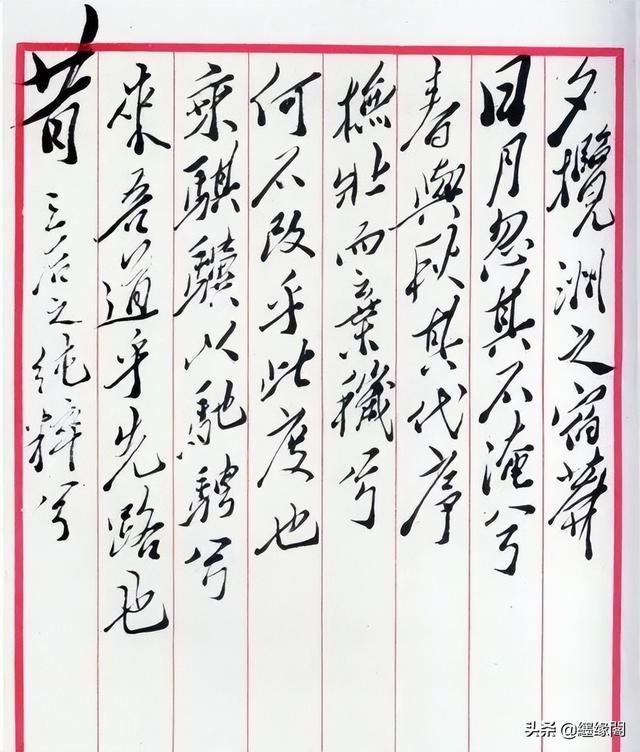 夕攬洲之宿莽
日月忽其不淹兮
春與秋其代序
撫壯而棄穢兮
何不改乎此度也
乘騏驥以馳騁兮
來吾道乎先路也
昔三后之純粹兮
头条 @纒缘閣